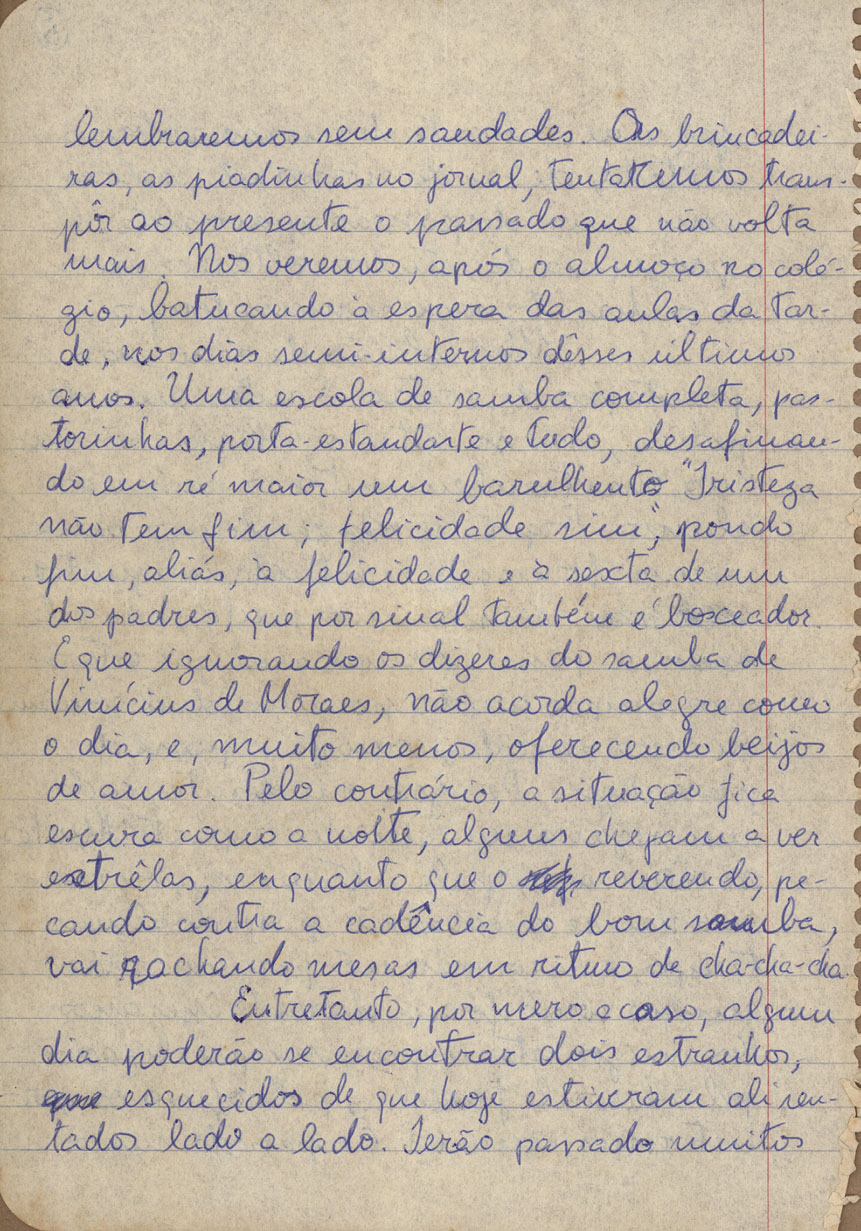 lembraremos sem saudades. As brincadei-
ras, as piadinhas no jornal, tentaremos trans-
pôr ao presente o passado que não volta
mais. Nos veremos, após o almoço no colé-
gio, batucando à espera das aulas da tar-
de, nos dias semi-internos dêsses últimos
anos. Uma escola de samba completa, pas-
torinhas, porta-estandarte e tudo, desafinan-
do em ré maior um barulhento "Tristeza
não tem fim; felicidade sim", pondo
fim, aliás, à felicidade e à sexta de um
dos padres, que por sinal também é boxeador.
E que ignorando os dizeres do samba de
Vinícius de Moraes, não acorda alegre como
o dia, e, muito menos, oferecendo beijos
de amor. Pelo contrário, a situação fica
escura como a noite, alguns chegam a ver
estrêlas, enquanto que o reverendo, pe-
cando contra a cadência do bom samba,
vai rachando mesas em ritmo de cha-cha-cha.
Entretanto, por mero acaso, algum
dia poderão se encontrar dois estranhos,
esquecidos de que hoje estiveram alinhen-
tados lado a lado. Terão passado muitos